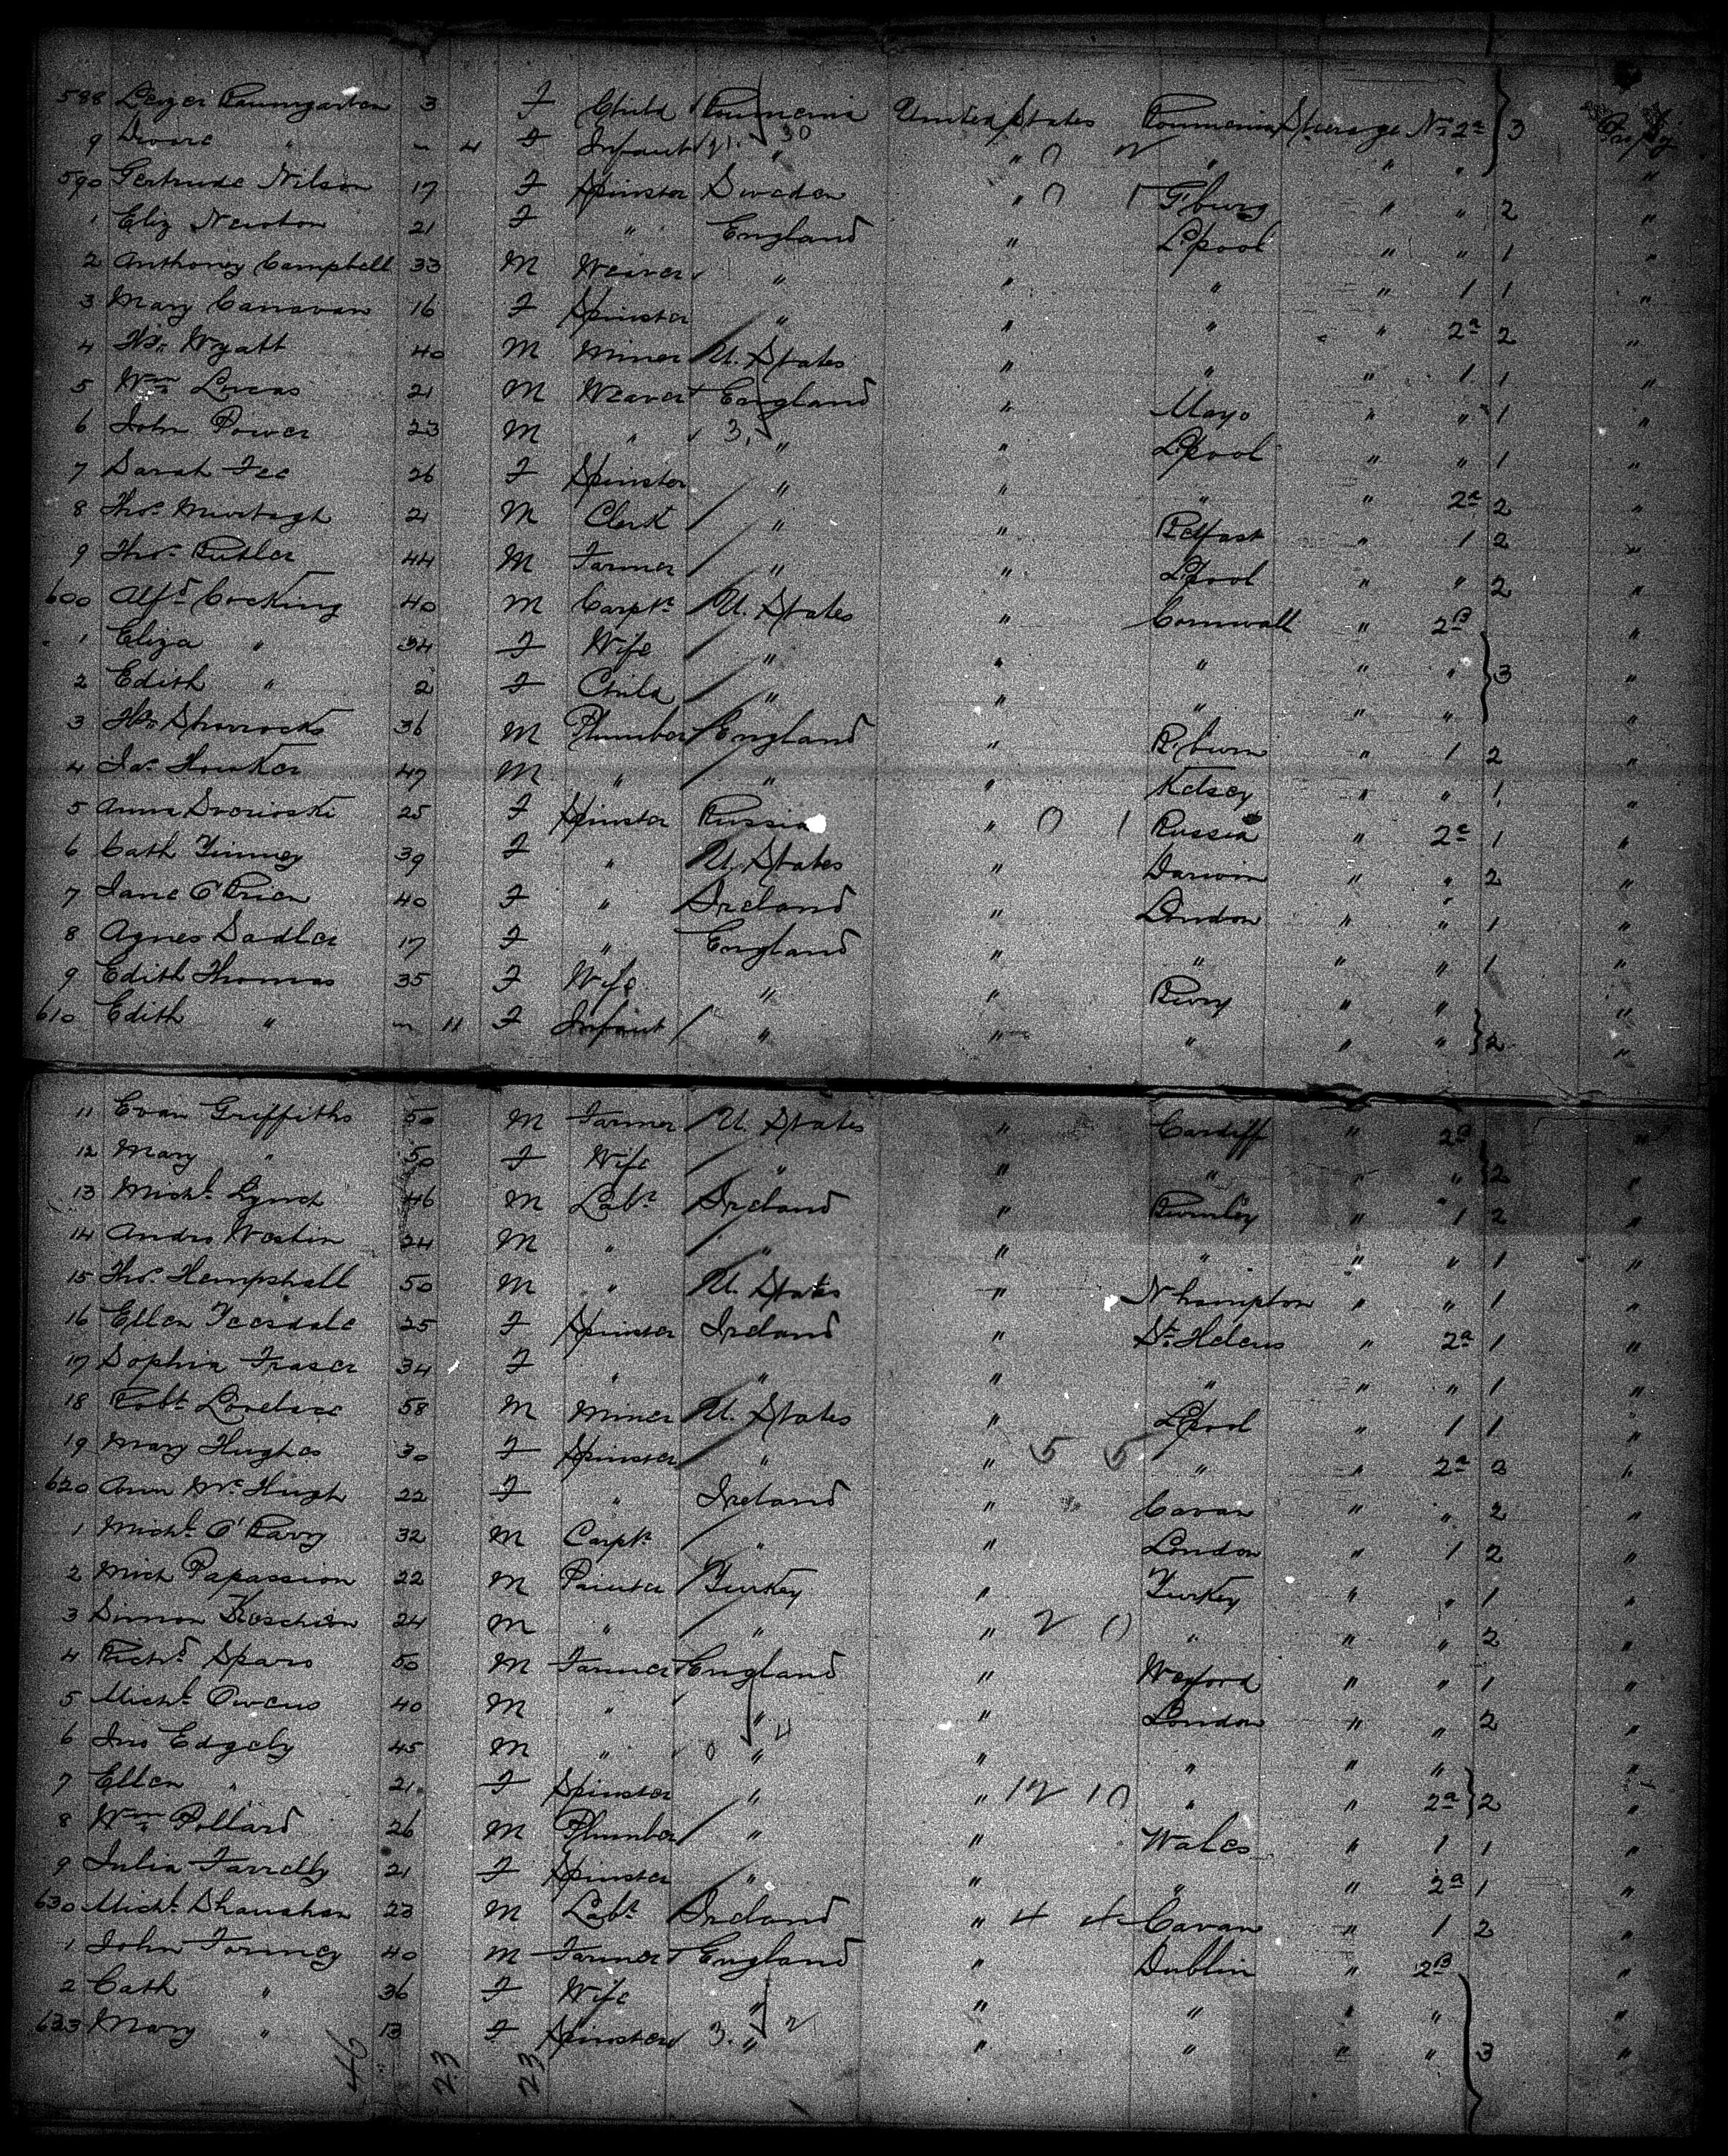 588 Leizer Baumgarten 3 F Child Roumenia United States Roumenia Steerage No 2a 3
9 " 4 F Infant " 30 " " " " "
590 Gertrude Nilson 17 F Spinster Sweden " G'burg " " 2 "
1 Eliz Newton 21 F " England " L'pool " " 1 "
2 Anthoney Campbell 33 M Weaver " " " " 1 1 "
3 Mary Canavan 16 F Spinster " " " " 2a 2 "
4 Wyatt 40 M Miner U. States " " " 1 1 "
5 Wm Lucas 21 M Weaver England " Mayo " " 1 "
6 John Power 23 M " 3 " " L'pool " " 1 "
7 Sarah Fee 26 F Spinster " " " " 2a 2 "
8 Thos Murtagh 21 M Clerk " " Belfast " 1 2 "
9 Thos Butler 44 M Farmer " " L'pool " " 2 "
600 Alfd Cocking 40 M Carptr U. States " Cornwall " 2B "
1 Eliza " 34 F Wife " " " " " 3 "
2 Edith " 2 F Child " " " " " "
3 Sharrocks 36 M Plumber England " B'burn " 1 2 "
4 Jas Howker 47 M " " " Kelsey " " 1 "
5 Anna 25 F Spinster Russia " 0 1 Russia " 2a 1 "
6 Cath Finney 39 F " U. States " Darwin " " 2 "
7 Jane O'Brien 40 F " Ireland " London " " 1 "
8 Agnes Sadler 17 F " England " " " " 1 "
9 Edith Thomas 35 F Wife " " Bury " " "
610 Edith " 11 F Infant " " " " " 2 "
11 Evan Griffiths 50 M Farmer U. States " Cardiff " 2B "
12 Mary " 50 F Wife " " " " " 2 "
13 Michl Lynch 46 M Labr Ireland " Burnley " 1 2 "
14 Andro Westin 24 M " " " " " " 1 "
15 Thos Hempshall 50 M " U. States " N'hampton " " 1 "
16 Ellen Teesdale 25 F Spinster Ireland " St Helens " 2a 1 "
17 Sophia Fraser 34 F " " " " " " 1 "
18 Robt Lovelace 58 M Miner U. States " L'pool " 1 1 "
19 Mary Hughes 30 F Spinster " " 5 5 " " 2a 2 "
620 Ann McHugh 22 F " Ireland " Cavan " " 2 "
1 Michl 32 M Carptr " " London " 1 2 "
2 Mich Papassion 22 M Painter Turkey " Turkey " " 1 "
3 Simon 24 M " " " 2 0 " " " 2 "
4 Richd Spars 50 M Farmer England " Wexford " " 1 "
5 Michl Owens 40 M " " " London " " 2 "
6 Jno Edgely 45 M " 0 " " " " " "
7 Ellen " 21 F Spinster " " 12 10 " " 2a 2 "
8 Wm Pollard 26 M Plumber " " Wales " 1 1 "
9 Julia Farrelly 21 F Spinster " " " " 2a 1 "
630 Michl Shanahan 23 M Labr Ireland " 4 4 Cavan " 1 2 "
1 John Formey 40 M Farmer England " Dublin " 2B "
2 Cath " 36 F Wife " " " " " "
633 Mary " 13 F Spinster 3. " 2 " " " " 3 "
46 23 23